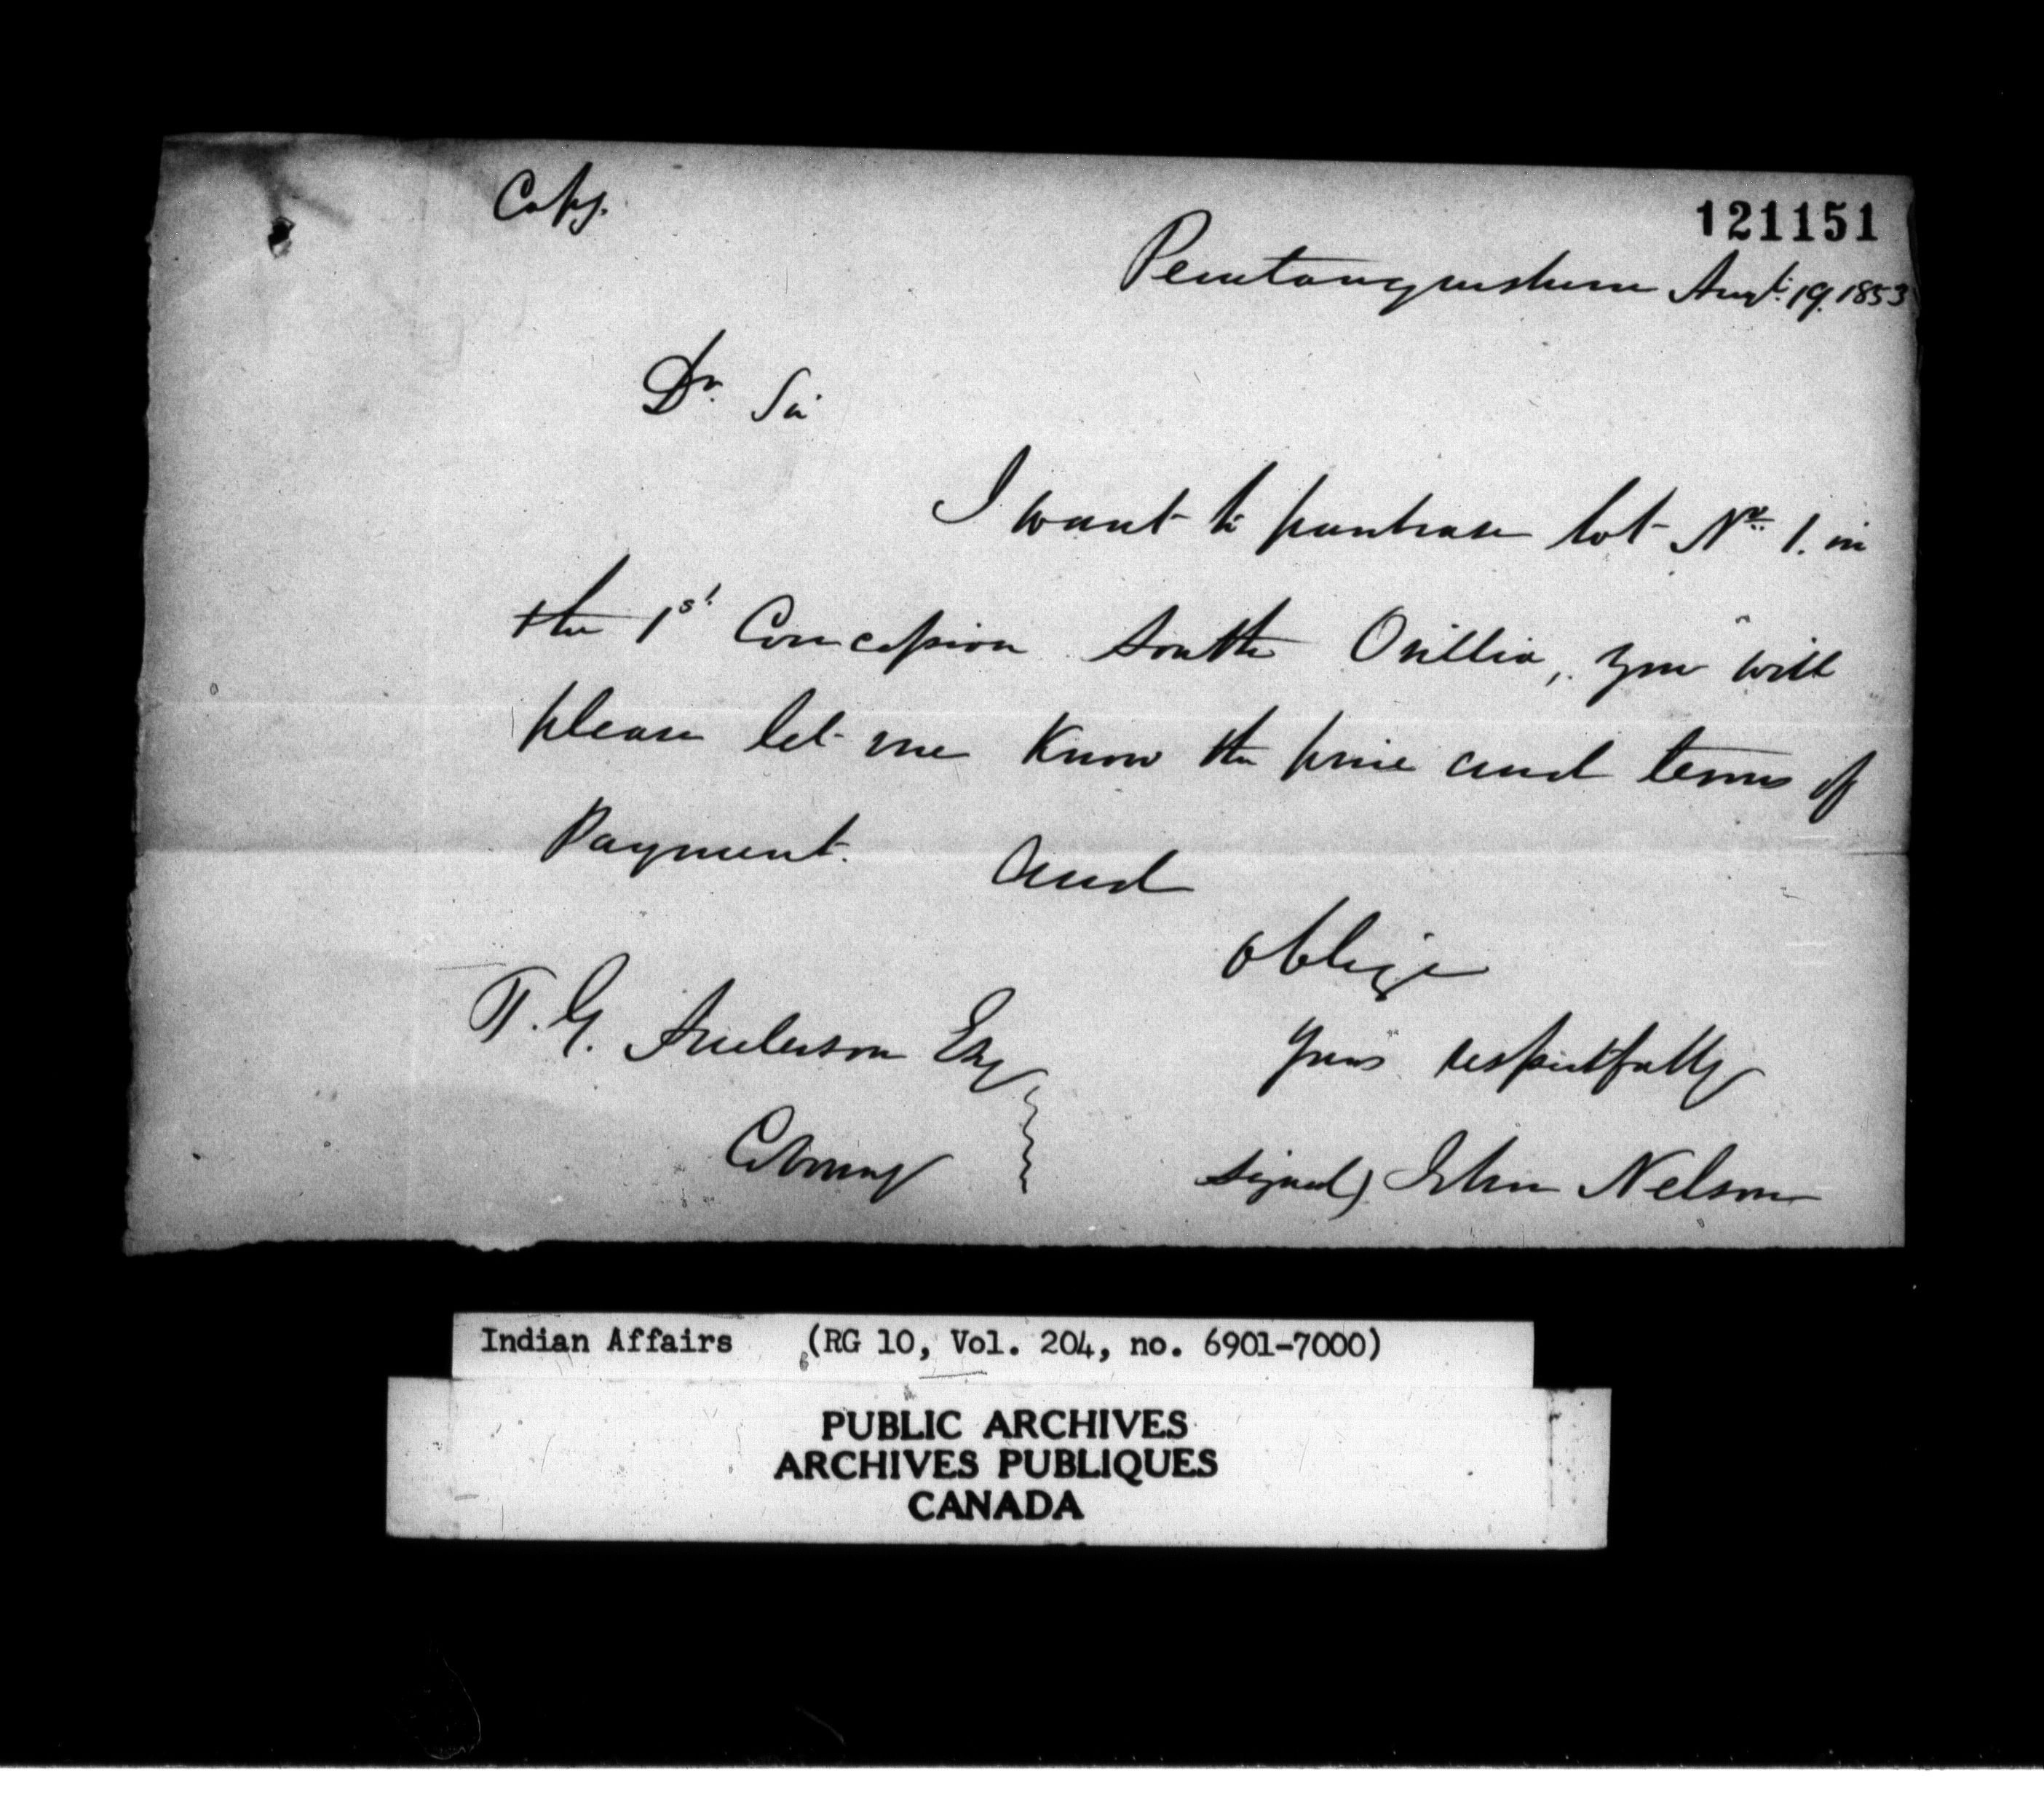 Copy.
121151
Penetanguishene Augt. 19. 1853
Dr. Sir
I want to purchase lot No. 1. in
the 1st Concession South Orillia, you will
please let me know the price and terms of
Payment. and
oblige
T. G. Anderson Esq
yours respectfully
Cobourg
signed) John Nelson
Indian Affairs (RG 10, Vol. 204, no. 6901-7000)
PUBLIC ARCHIVES
ARCHIVES PUBLIQUES
CANADA